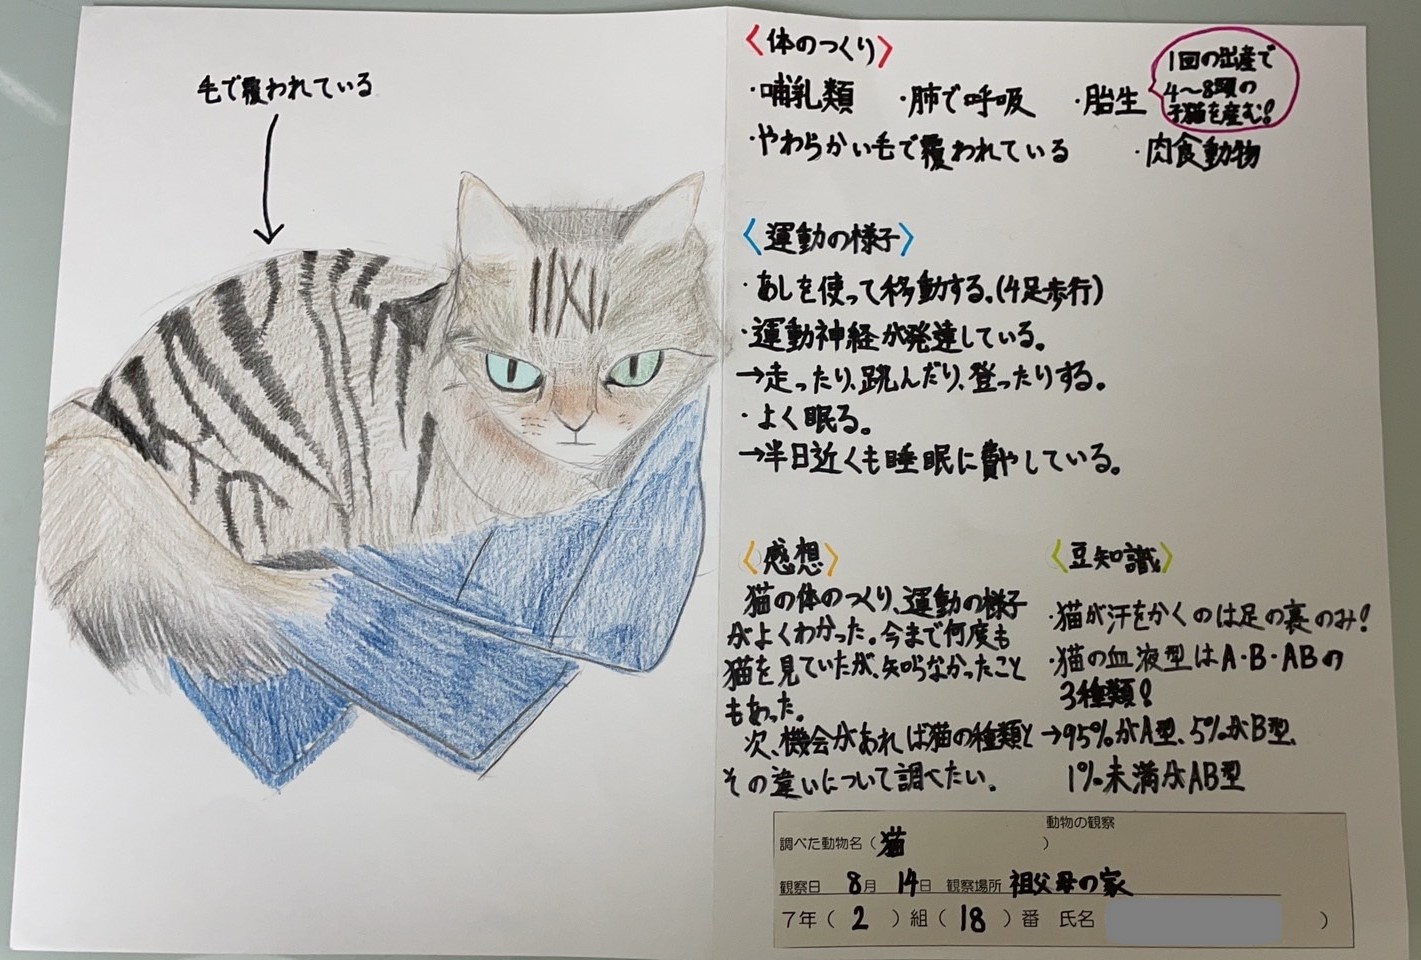 毛で覆われている
〈体のつくり〉
・哺乳類 ・肺で呼吸 ・胎生
1回の出産で
4〜8頭の
子猫を産む!
・やわらかい毛で覆われている ・肉食動物
〈運動の様子〉
・あしを使って移動する。(4足歩行)
・運動神経が発達している。
→走ったり、跳んだり、登ったりする。
・よく眠る。
→半日近くも睡眠に費やしている。
〈感想〉
猫の体のつくり、運動の様子
がよくわかった。今まで何度も
猫を見ていたが、知らなかったこと
もあった。
次、機会があれば猫の種類と
その違いについて調べたい。
〈豆知識〉
・猫が汗をかくのは足の裏のみ!
・猫の血液型はA・B・ABの
3種類!
→95%がA型、5%がB型、
1%未満がAB型
動物の観察
調べた動物名(猫)
観察日 8月 14日 観察場所 祖父母の家
7年(2)組(18)番 氏名( )